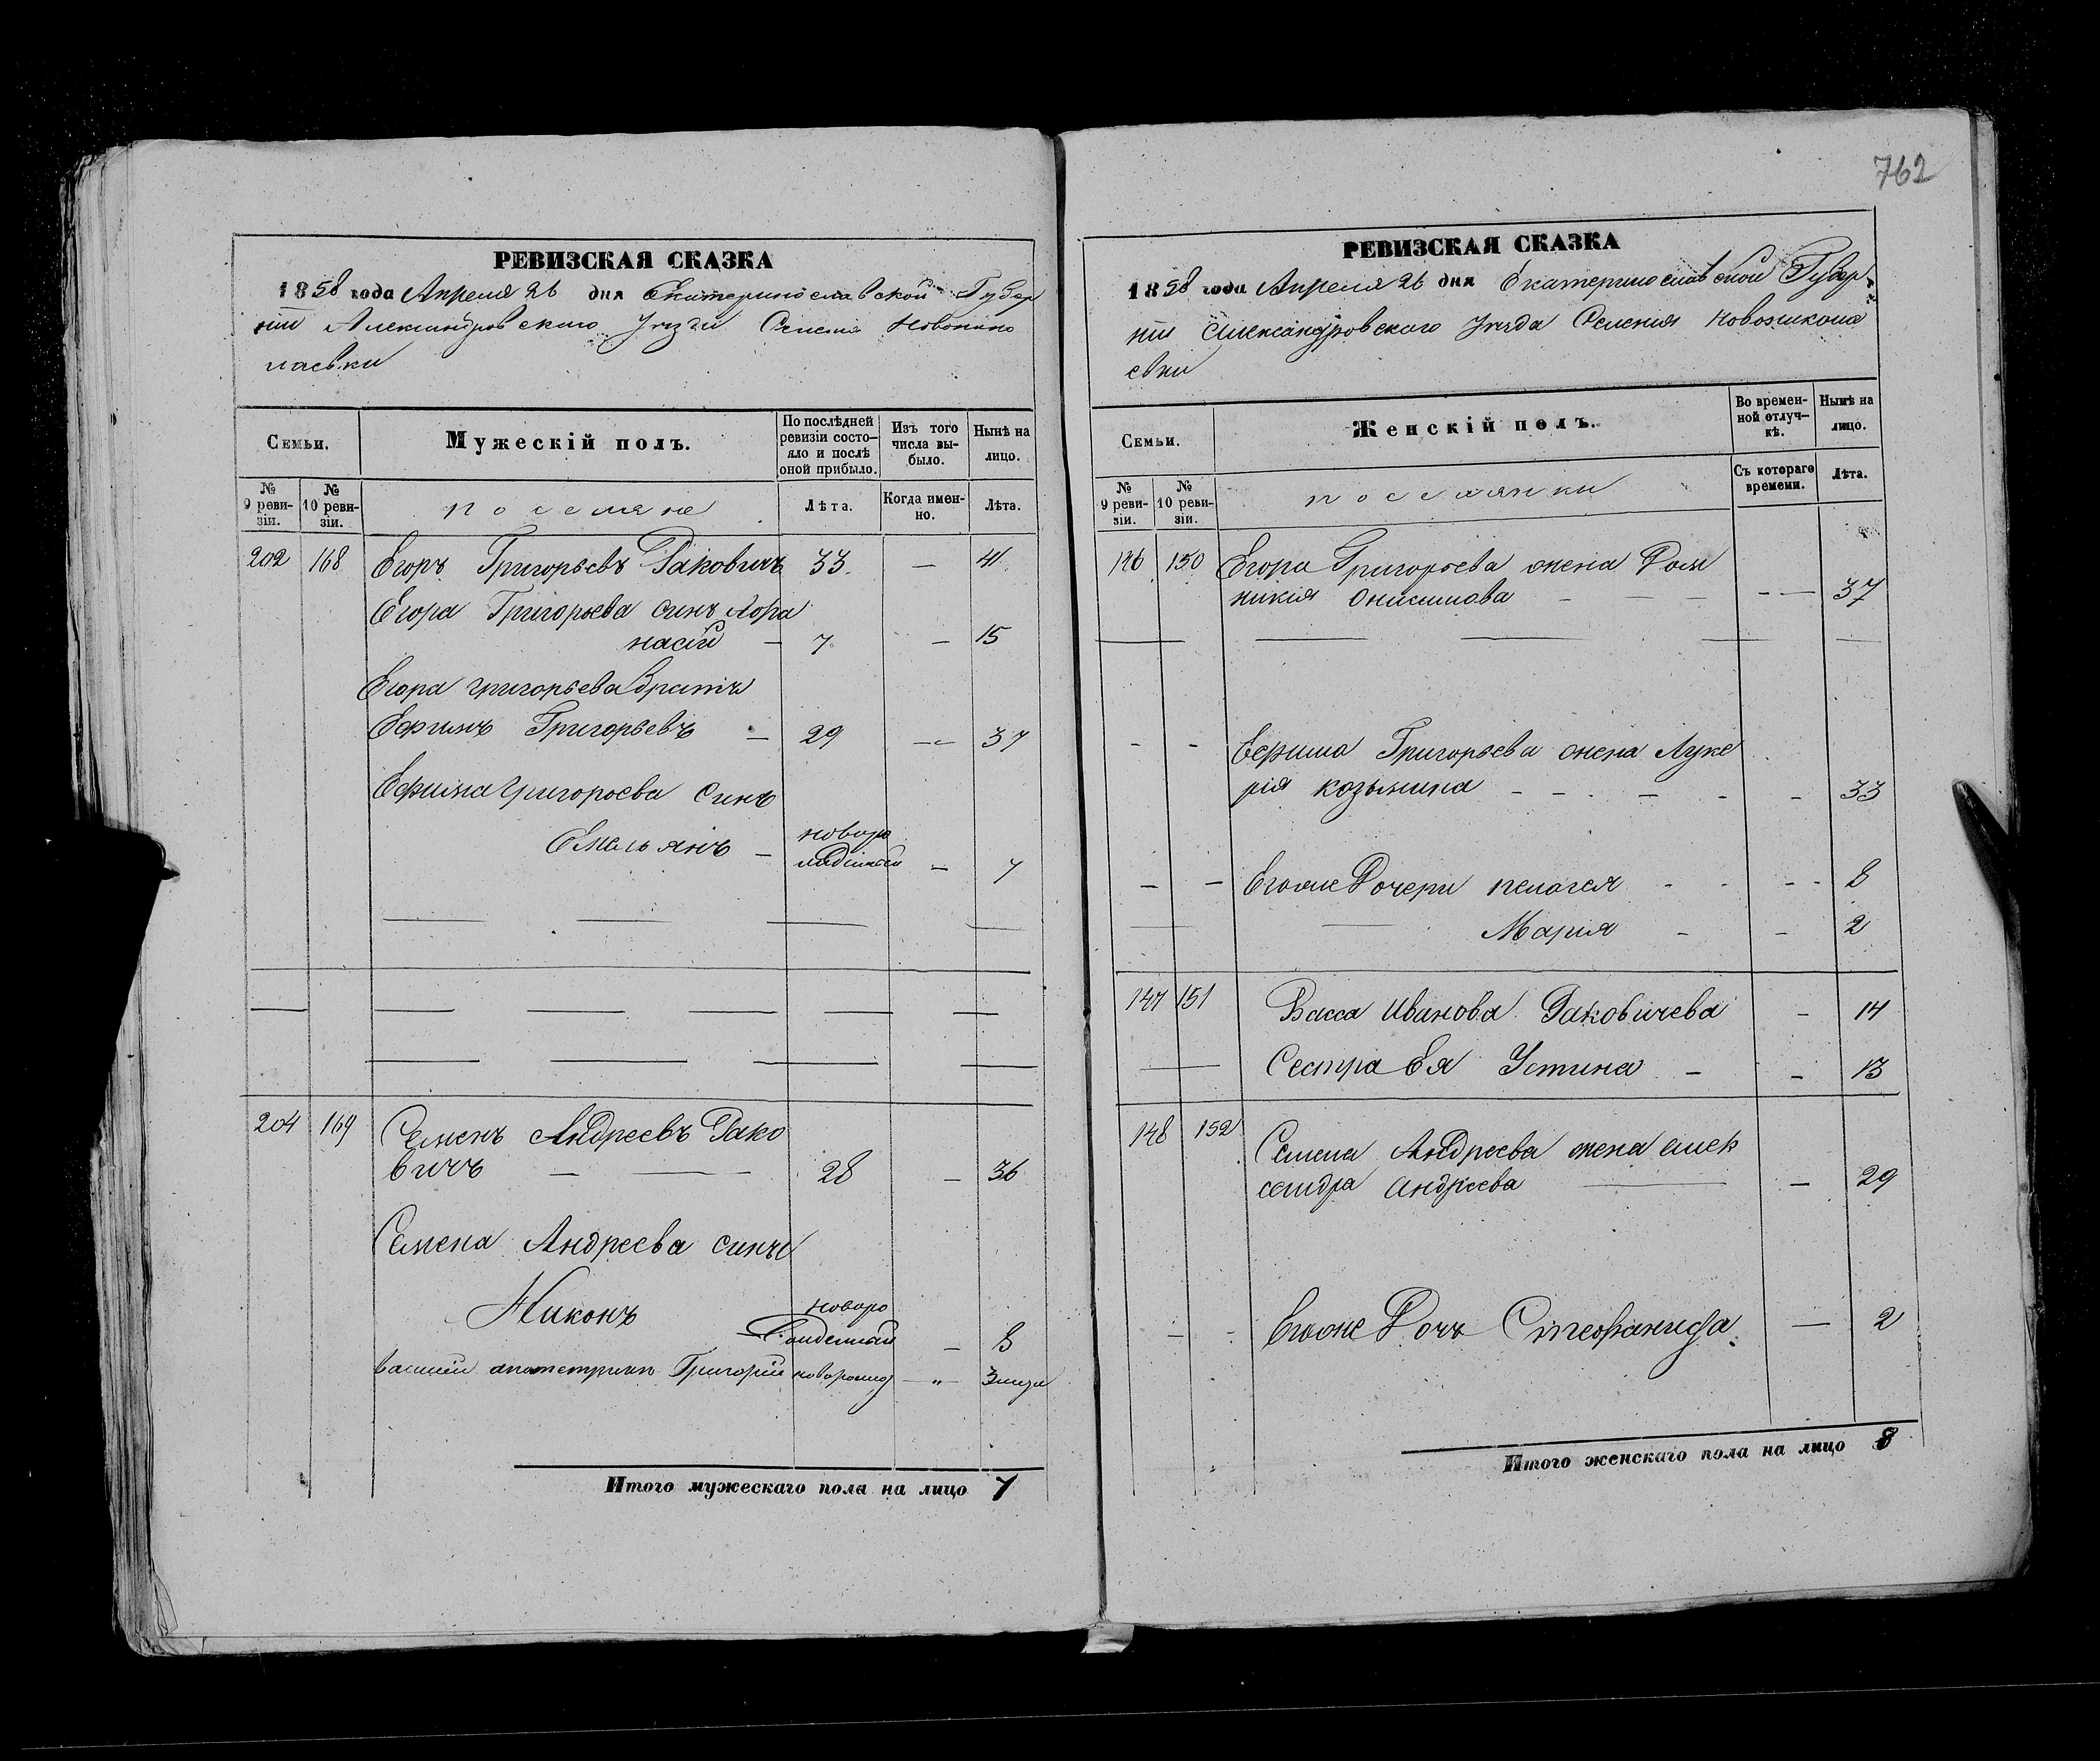 762
РЕВИЗСКАЯ СКАЗКА
1858 года Апреля 26 дня Екатеринославской Губер
нии Александровского Уезда Селения Новонико
лаевки
Семьи.
Мужескій полъ.
По послѣдней ревизіи состо-яло и послѣ оной прибыло.
Изъ того числа вы-было.
Нынѣ на лицо.
№ 9 реви-зіи.
№ 10 реви-зіи.
поселяне
Лѣта.
Когда имен-но.
Лѣта.
202 168 Егоръ Григорьевъ Раковичъ 33 — 41
Егора Григорьева синъ Афа
насій — 7 — 15
Егора Григорьева братъ
Ефимъ Григорьевъ — 29 — 37
Ефима Григорьева синъ
Емельянъ — новоро
— 7
204 169 Семенъ Андреевъ Рако
вичъ — — 28 — 36
Семена Андреева сины
Никонъ новоро
жденный — 8
Григорий новорожд — „ — 3
Итого мужескаго пола на лицо 7
РЕВИЗСКАЯ СКАЗКА
1858 года Апреля 26 дня Екатеринославской Губер
нии Александровского Уезда Селения Новоникола
евки
Семьи.
Женскій полъ.
Во времен-ной отлуч-кѣ.
Нынѣ на лицо.
№ 9 реви-зіи.
№ 10 реви-зіи.
поселянки
Съ котораго времени.
Лѣта.
146 150 Егора Григорьева жена Дом
никия Онисимова — — — — 37
- - Ефима Григорьева жена Луке
рія Козьмина - - - - - 33
— — Егоже Дочери Пелагея - - - - 8
Мария - - 2
147 151 Васса Иванова Раковичева - 14
Сестра Ея Устина — - 13
148 152 Семена Андреева жена алек
сандра Андреева — — 29
— - Егоже Дочь Стефанида — 2
Итого женскаго пола на лицо 8